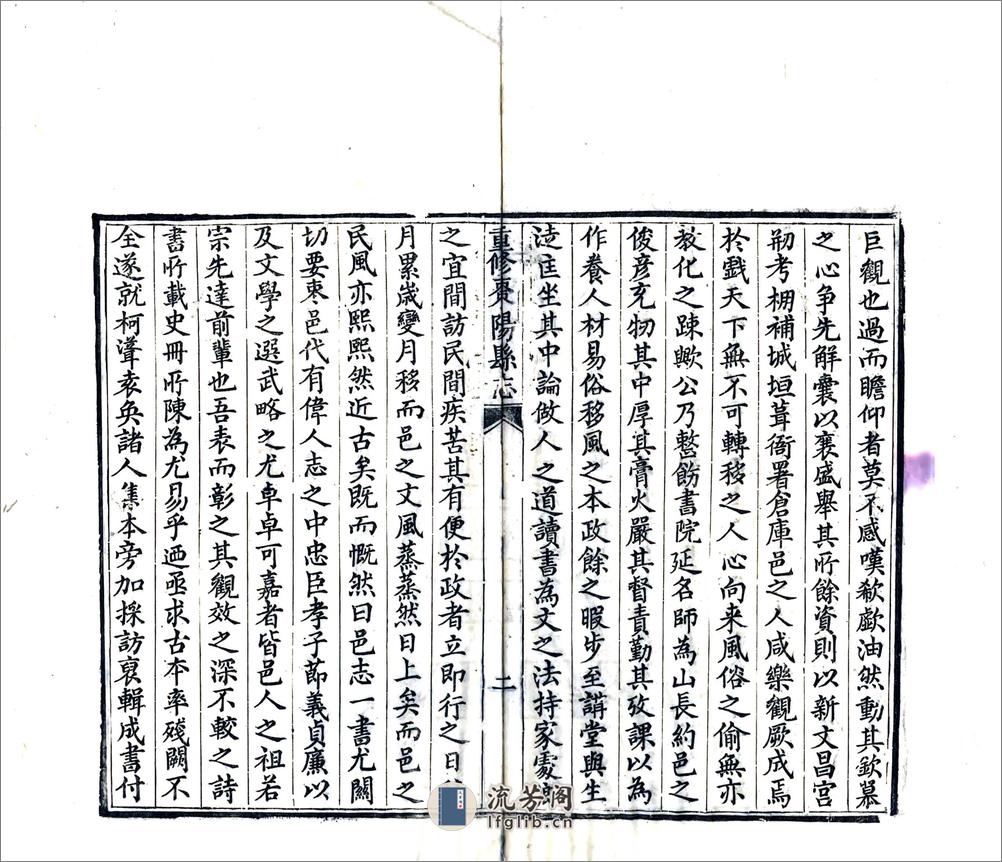 巨觀也過而瞻仰者莫不感嘆欷歔油然動其欽慕
之心爭先解囊以襄盛舉其所餘資則以新文昌宮
剏考棚補城垣葺衙署倉庫邑之人咸樂觀厥成焉
於戲天下無不可轉移之人心向来風俗之偷無亦
教化之踈歟公乃整飭書院延名師為山長約邑之
俊彥充物其中厚其膏火嚴其督責勤其攷課以為
作養人材易俗移風之本政餘之暇步至講堂與生
徒匡坐其中論做人之道讀書為文之法持家處
重修棗陽縣志
二
之宜間訪民間疾苦其有便於政者立即行之日
月累歲變月移而邑之文風蒸蒸然日上矣而邑之
民風亦熙熙然近古矣既而慨然曰邑志一書尤關
切要枣邑代有偉人志之中忠臣孝子節義貞廉以
及文學之選武略之尤卓卓可嘉者皆邑人之祖若
宗先達前輩也吾表而彰之其觀效之深不較之詩
書所載史冊所陳為尤易乎迺亟求古本率殘闕不
全遂就柯瀈袁奐諸人集本旁加採訪裒輯成書付
流芳閣
lfglib.cn